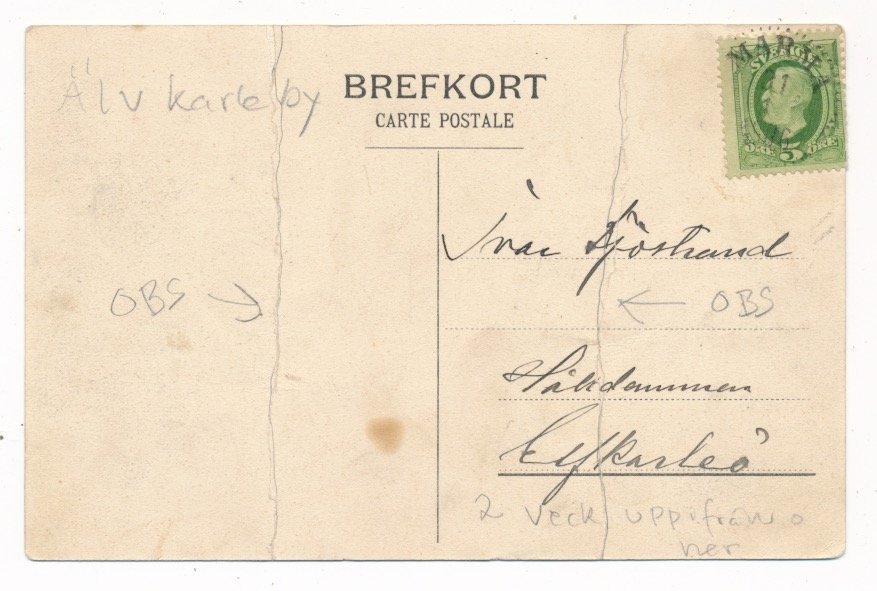 Älvkarleby
BREFKORT
CARTE POSTALE
MARMA
SVERIGE
5 ÖRE
Ivar Sjöstrand
OBS → ← OBS
Elfkarleö
2 veck uppifrån o
ner